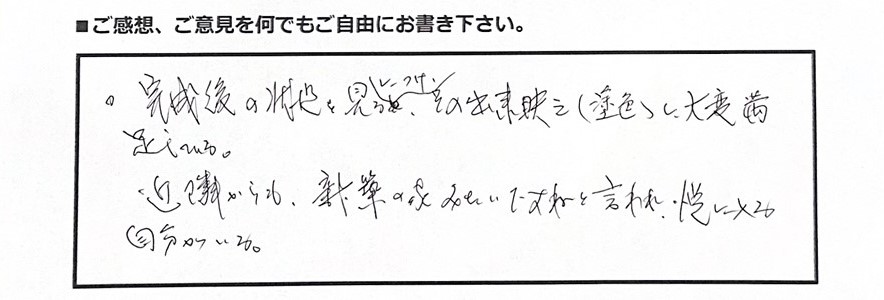 ■ご感想、ご意見を何でもご自由にお書き下さい。
。完成後の状況を見るにつけ、その出来映え(塗色)に大変満
足している。
・近隣からも、新築の家みたいですねと言われ、悦に入る
自分がいる。